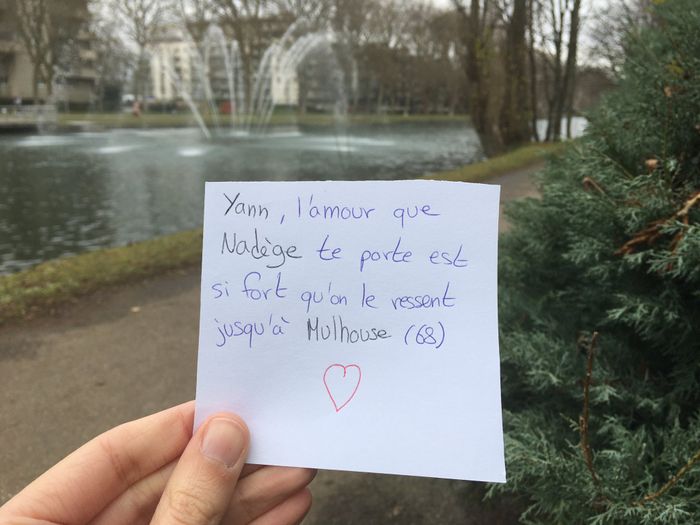 Yann, l'amour que
Nadège te porte est
si fort qu'on le ressent
jusqu'à Mulhouse (68)